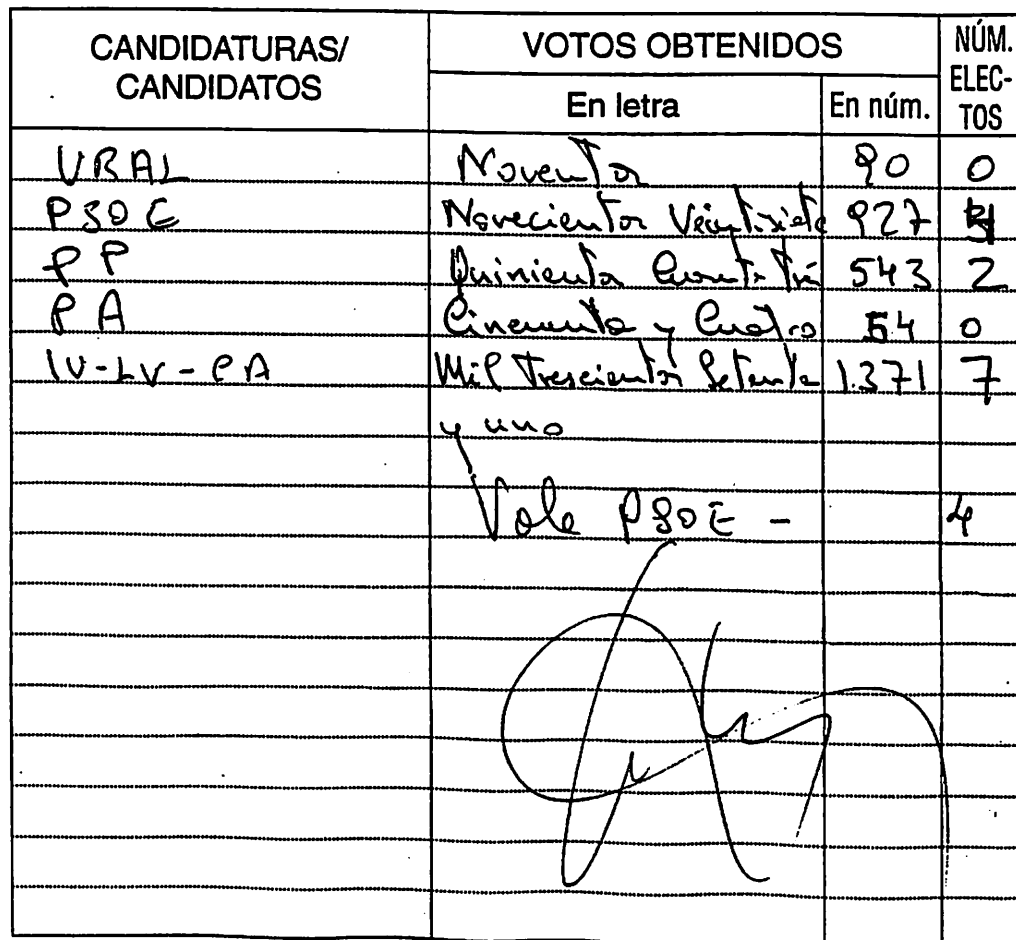 CANDIDATURAS/ CANDIDATOS VOTOS OBTENIDOS NÚM. ELEC- TOS
En letra En núm.
URAL Noventa 90 0
PSOE Novecientos Veintisiete 927
PP Quinientos Cuarenta Tres 543 2
PA Cincuenta y Cuatro 54 0
IU-LV-CA Mil Trescientos Setenta 1.371 7
y uno
Vale PSOE - 4